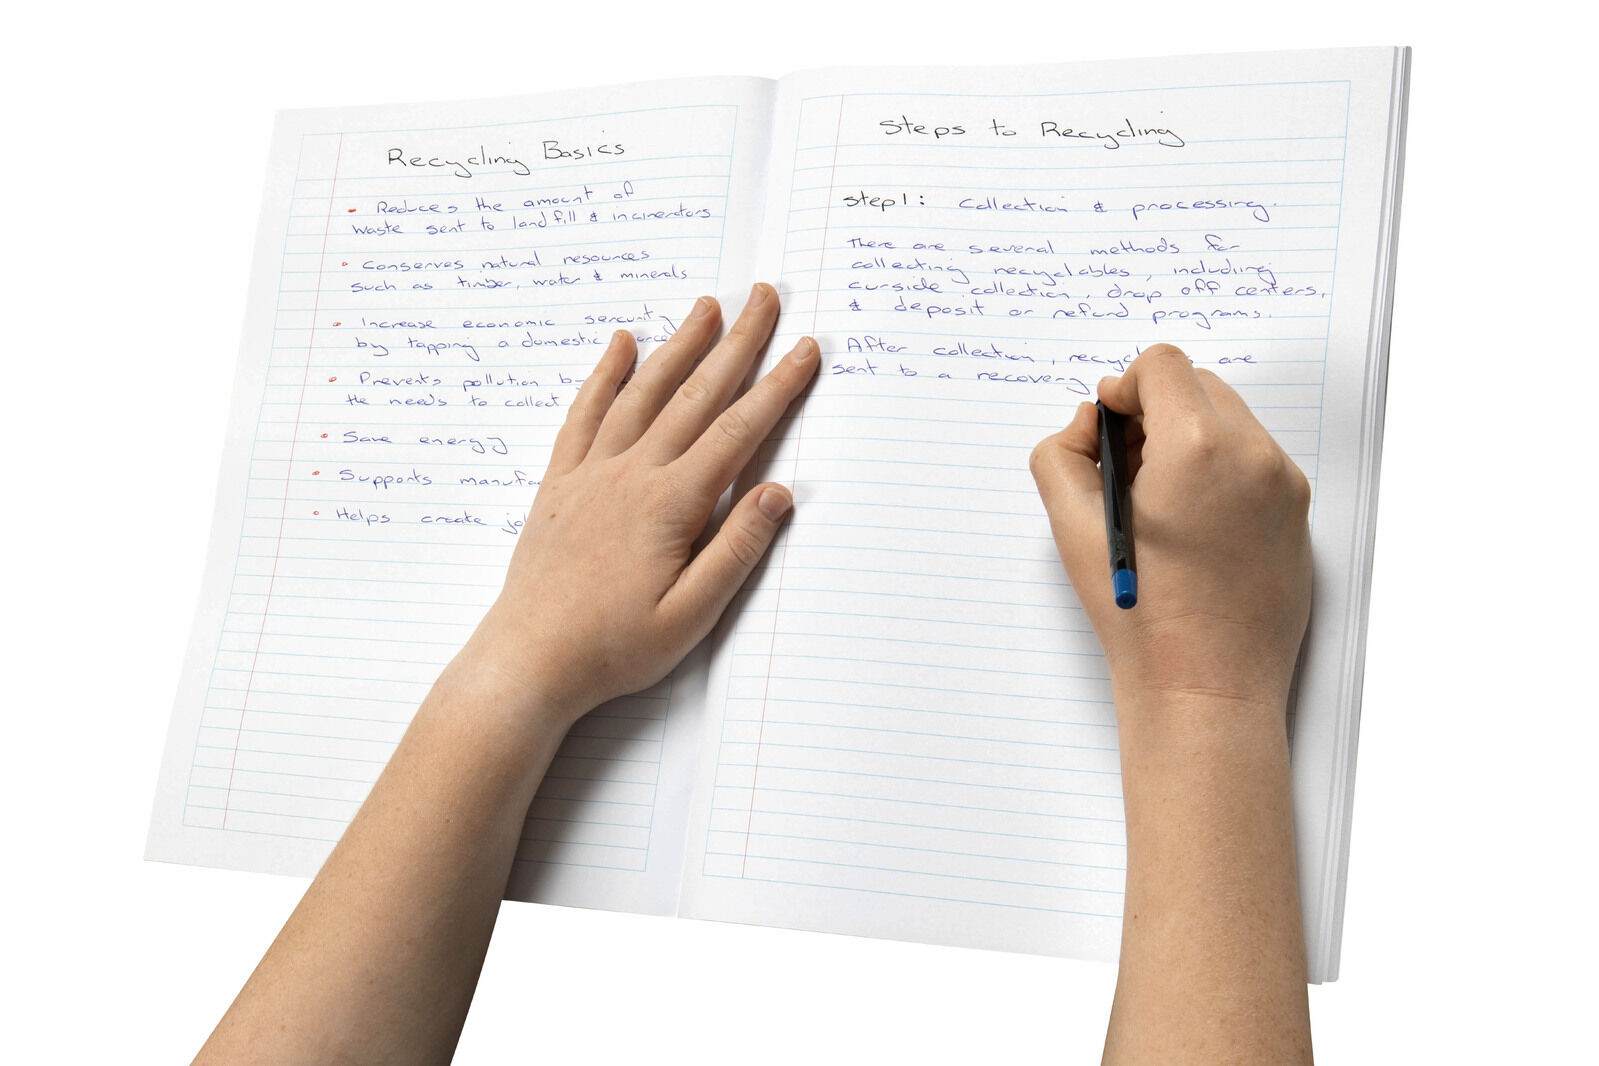 Recycling Basics
Reduces the amount of
waste sent to landfill & incinerators
Conserves natural resources
such as timber, water & minerals
Increase economic sercurity
by tapping a domestic
Prevents pollution
the needs to collect
Save energy
Supports
Helps create
Steps to Recycling
Step 1: Collection & processing.
There are several methods for
collecting recyclables, including
curside collection, drop off centers,
& deposit or refund programs.
After collection, are
sent to a recovery